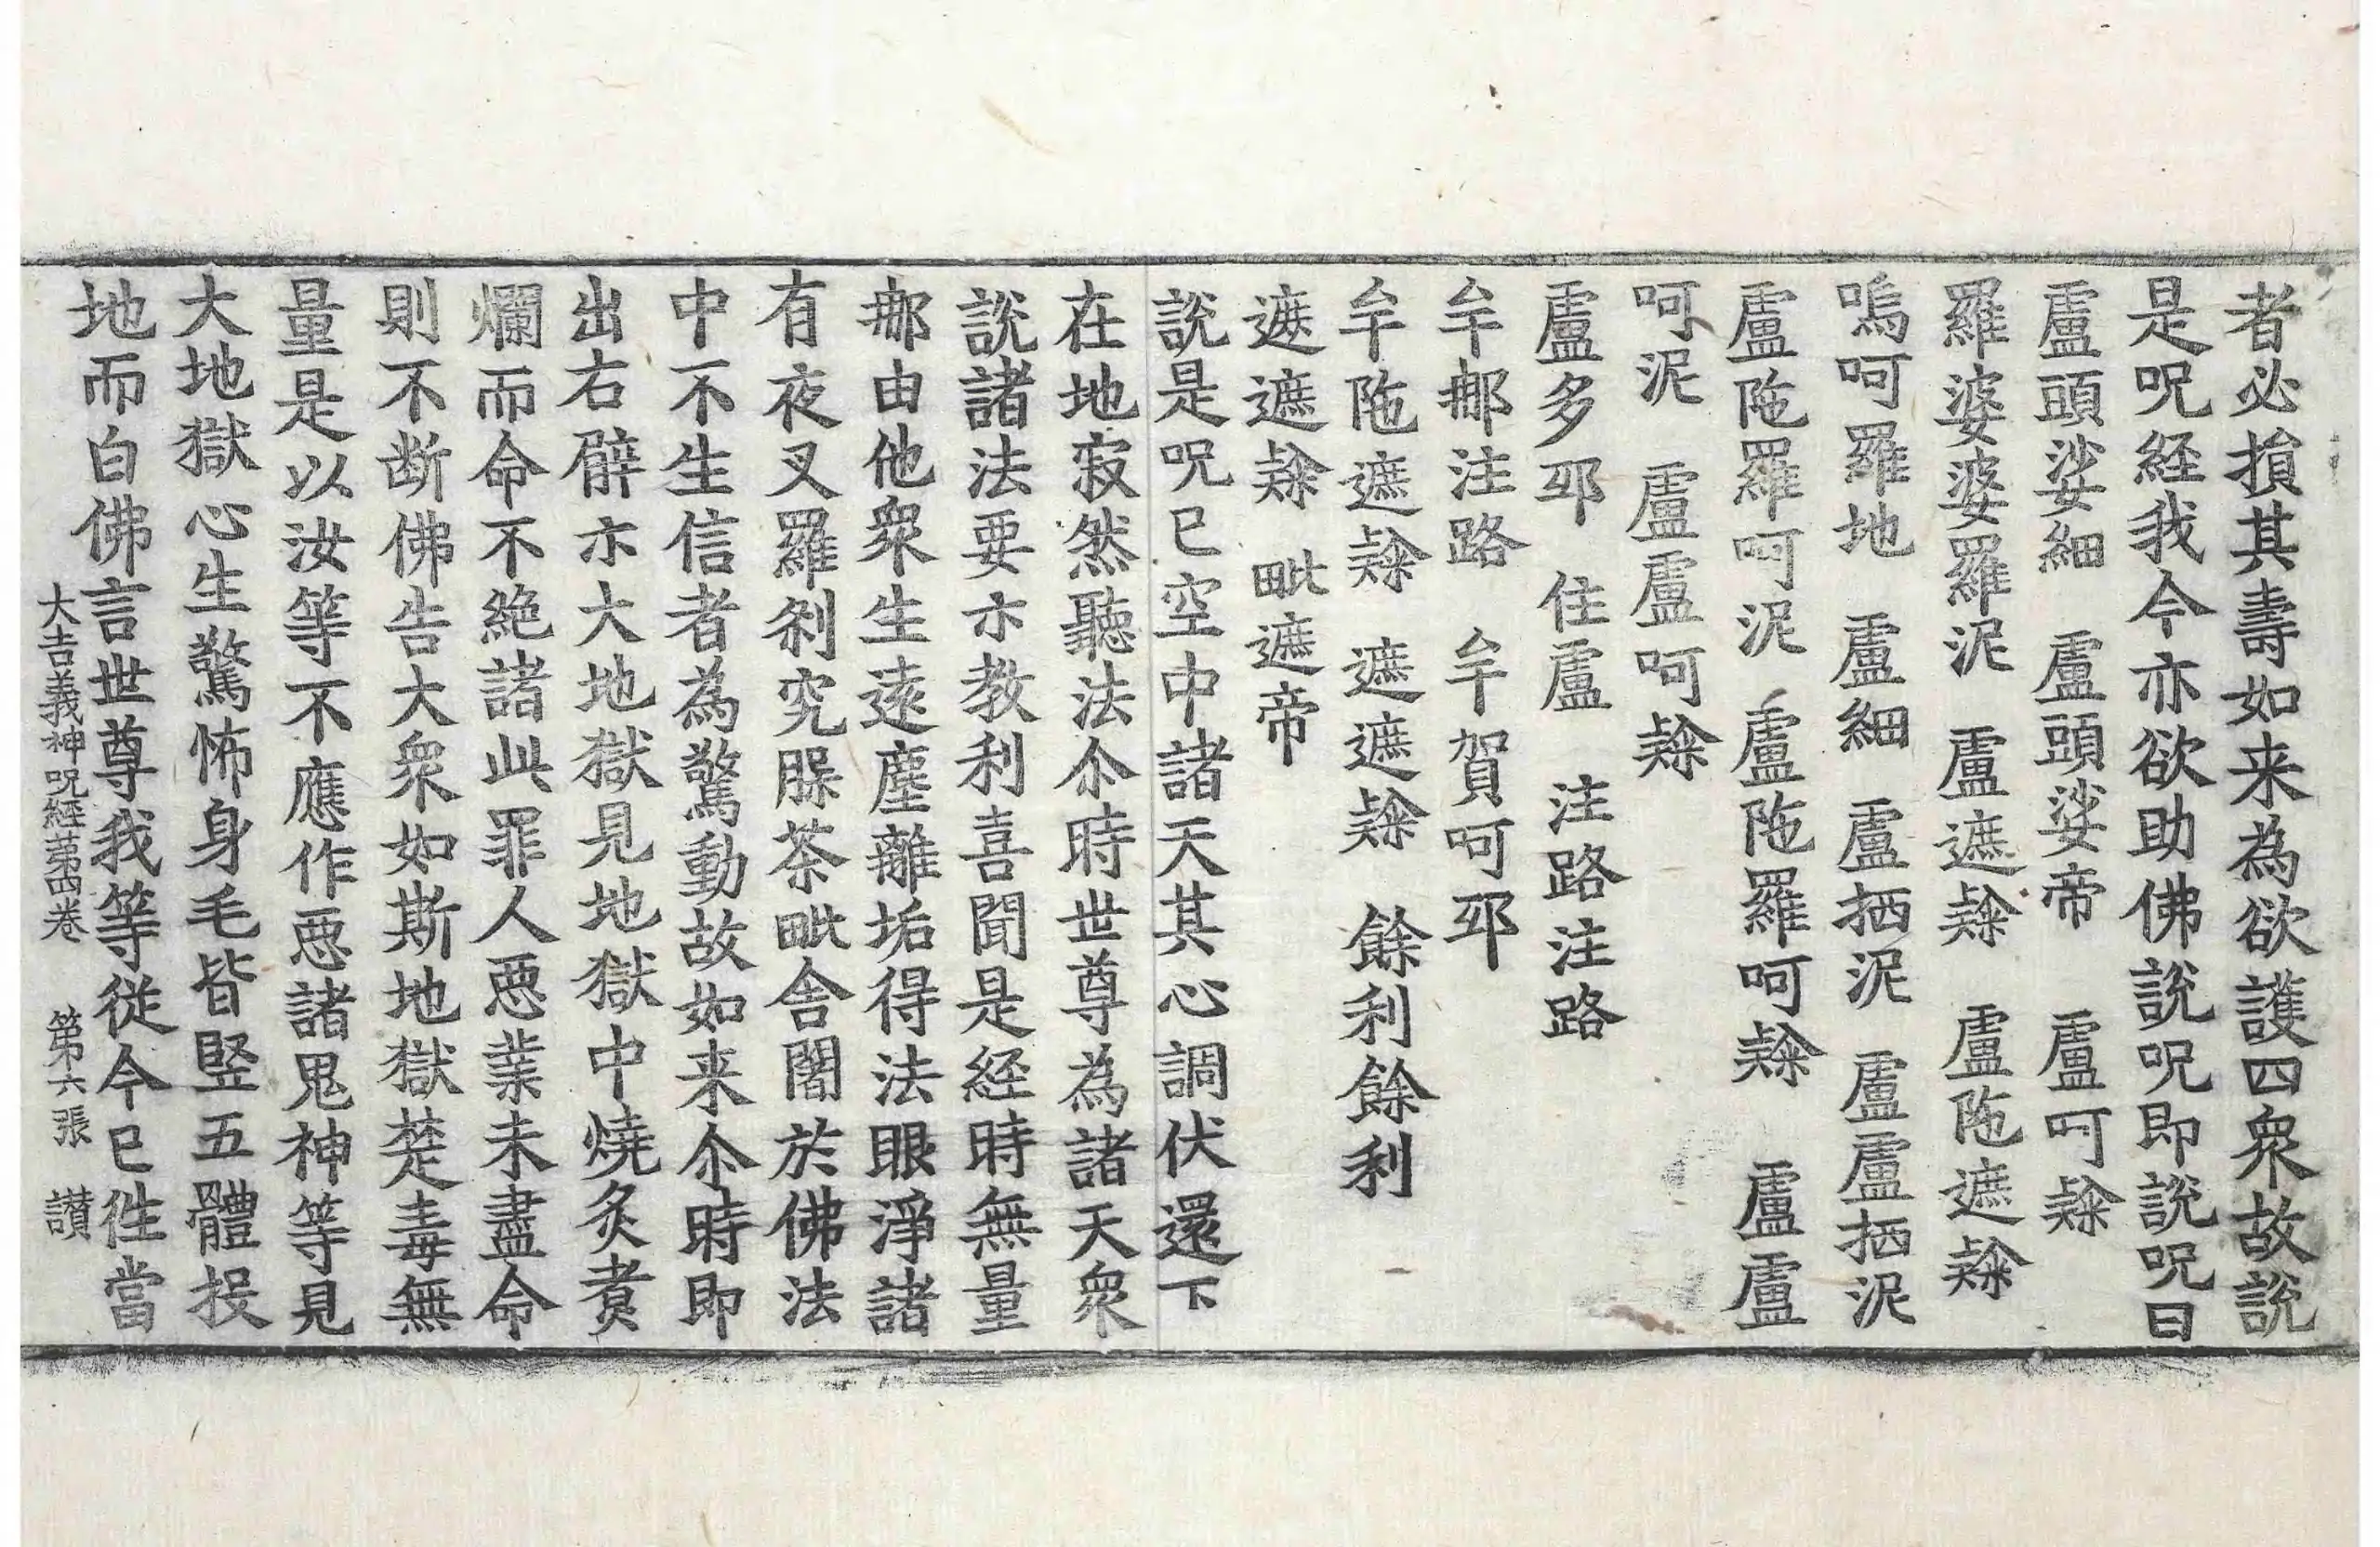 者必損其壽如来為欲護四衆故說
是呪経我今亦欲助佛說呪即說呪曰
盧頭娑細　盧頭娑帝　盧呵𨽻
羅婆婆羅泥　盧遮𨽻　盧陁遮𨽻
嗚呵羅地　盧細　盧栖泥　盧盧栖泥
盧陁羅呵泥　盧陁羅呵𨽻　盧盧
呵泥　盧盧呵𨽻
盧多耶　住盧　注路注路
牟郍注路　牟賀呵耶
牟陁遮𨽻　遮遮𨽻　餘利餘利
遮遮𨽻　毗遮帝
說是呪已空中諸天其心調伏還下
在地寂然聽法尒時世尊為諸天衆
說諸法要亦教利喜聞是経時無量
郍由他衆生遠塵離垢得法眼淨諸
有夜叉羅刹究脲茶毗舍闍於佛法
中不生信者為驚動故如来尒時即
出右臂亦大地獄見地獄中燒炙煑
爛而命不絶諸此罪人惡業未盡命
則不断佛告大衆如斯地獄楚毒無
量是以汝等不應作惡諸鬼神等見
大地獄心生驚怖身毛皆竪五體投
地而白佛言世尊我等從今已往當
大吉義神呪経第四卷　第六張　讃